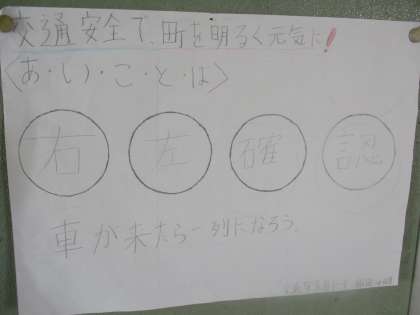 交通安全で、町を明るく元気に!
〈あ・い・こ・と・ば〉
右 左 確 認
車が来たら一列になろう。